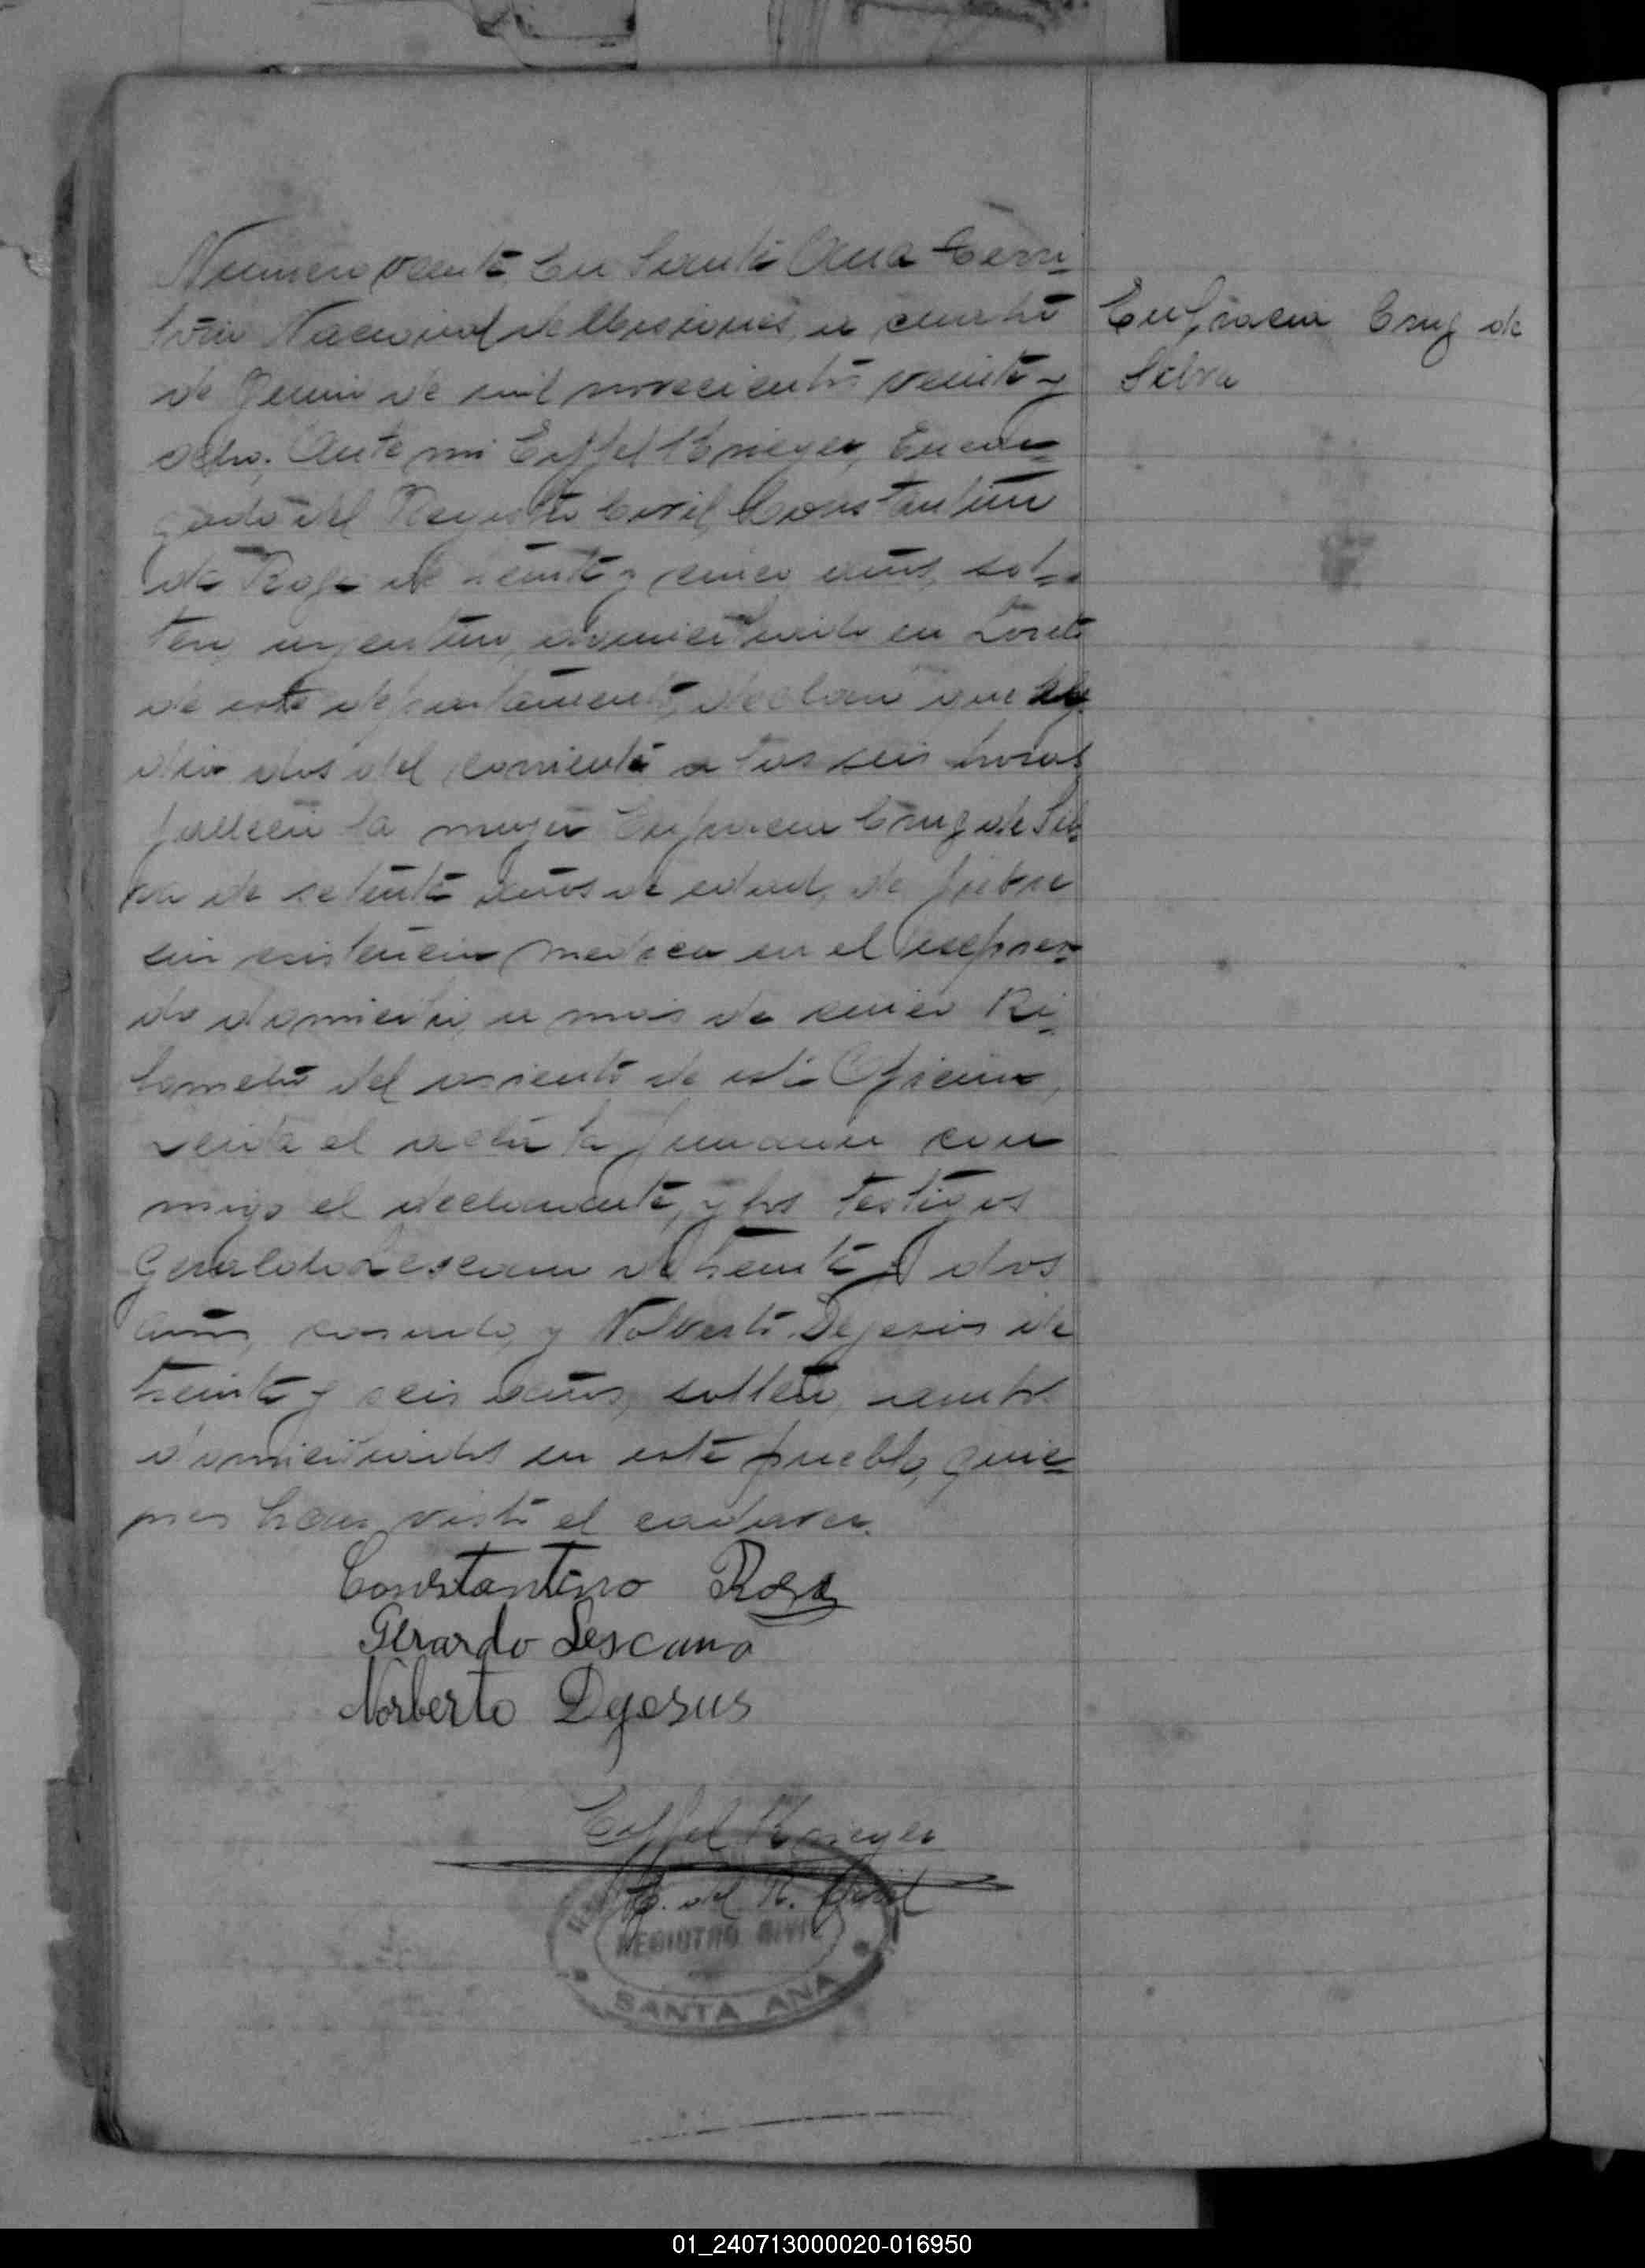 Numero veinte, En Santa Ana Terri-
torio Nacional de Misiones, a cuatro
de Junio de mil novecientos veinte y
ocho; Ante mi Eiffel Krieger, Encar-
gado del Registro Civil, Constantino
da Rosa de veinte y cinco años, sol-
tero, argentino, domiciliado en Loreto
de este departamento, declaró que el
dia dos del corriente a las seis horas
falleció la mujer Eufracia Cruz de Sil-
va de setenta años de edad, de fiebre
sin asistencia medica en el expresa-
do domicilio, a mas de cinco Ki-
lometro del asiento de esta Oficina,
leida el acta la firmaron con
migo el declarante, y los testigos
Geraldo Lescano de treinta y dos
años, casado, y Nolberto Dejesus de
treinta y seis años, soltero, ambos
domiciliados en este pueblo, quie-
nes han visto el cadaver.
Eufracia Cruz de
Selva
Constantino Rosa
Gerardo Lescano
Norberto Dejesus
Eiffel Krieger
E. del R. Civil
REGISTRO CIVIL
SANTA ANA
01_240713000020-016950